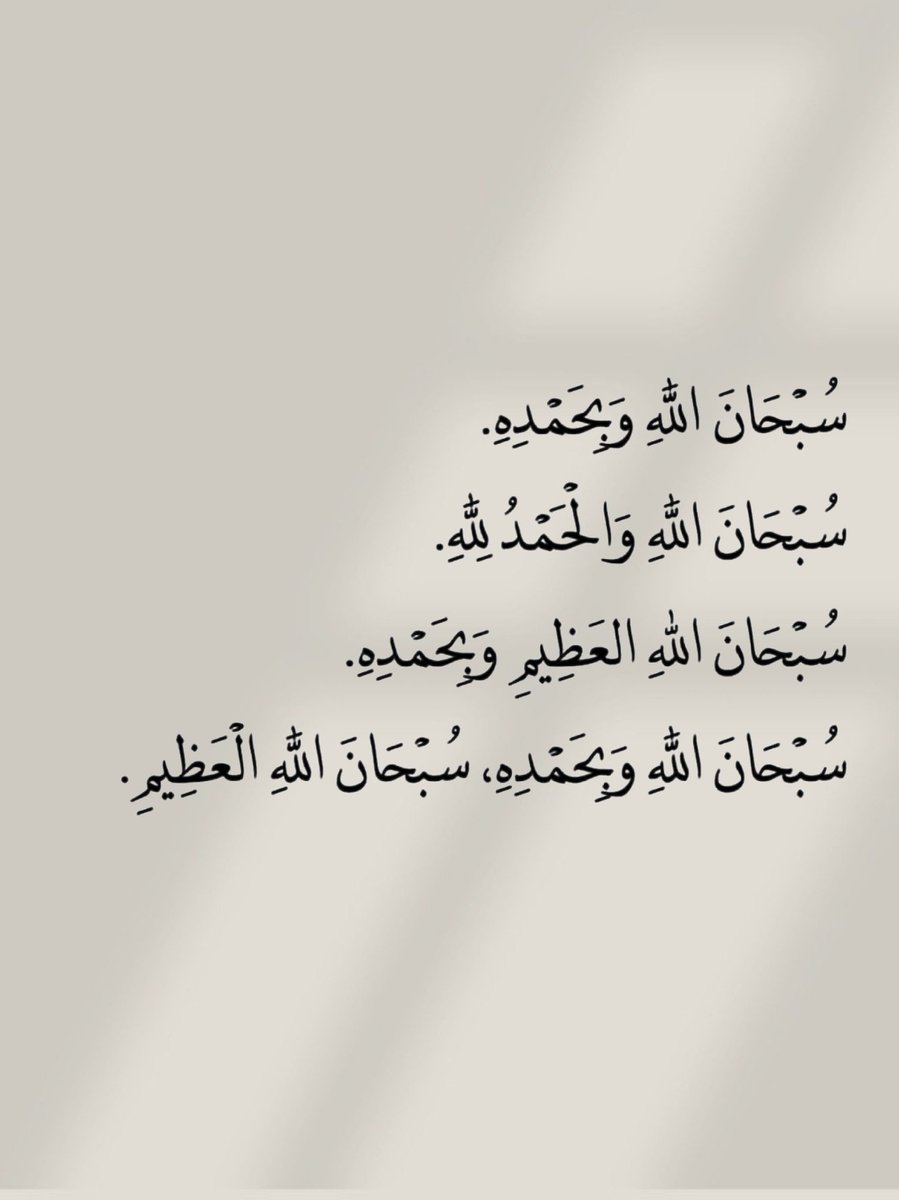 سُبْحَانَ اللَّهِ وَبِحَمْدِهِ.
سُبْحَانَ اللَّهِ وَالْحَمْدُ لِلَّهِ.
سُبْحَانَ اللهِ العَظِيمِ وَبِحَمْدِهِ.
سُبْحَانَ اللَّهِ وَبِحَمْدِهِ، سُبْحَانَ اللَّهِ الْعَظِيمِ.